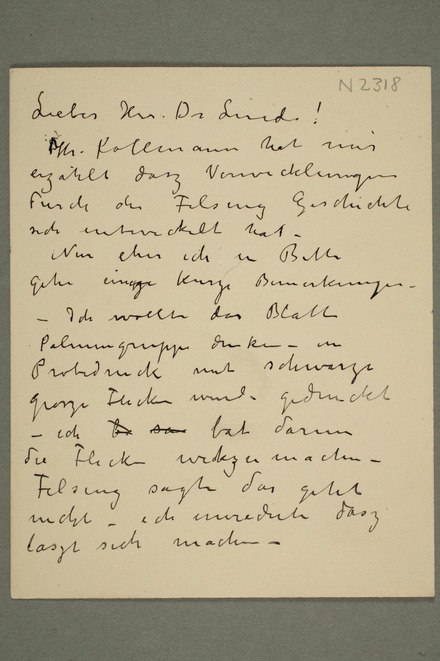 N 2318
Lieber Herr Dr Linde!
Hr. Kollmann hat mir
erzählt dasz Verwicklungen
durch die Felsing Geschichte
sich entwickelt hat –
Nur eher ich zu Bette
gehe einige kurze Bemerkungen –
– Ich wollte das Blatt
Palmengruppe drucken – ein
Probedruck mit schwarze
grosze Flecken wurde gedruckt
– ich bat darum
die Flecken wekzumachen –
Felsing sagte das geht
nicht – ich dasz
laszt sich machen –